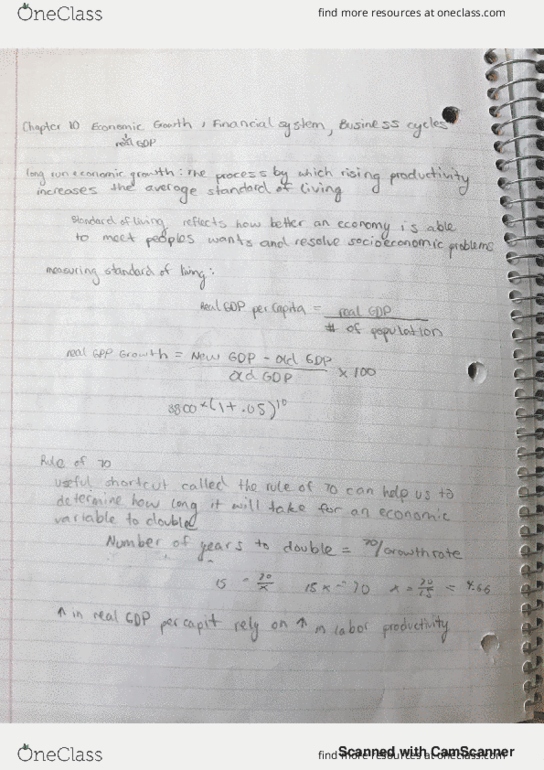 OneClass
find more resources at oneclass.com
Chapter 10 Economic Growth, Financial system, Business cycles
real GDP
long run economic growth: the process by which rising productivity
increases the average standard of living
Standard of living reflects how better an economy is able
to meet peoples wants and resolve socioeconomic problems
measuring standard of living:
Real GDP per capita = real GDP
# of population
real GDP Growth = New GDP - old GDP
old GDP x 100
8800 x (1+.05)^10
Rule of 70
useful shortcut called the rule of 70 can help us to
determine how long it will take for an economic
variable to double
Number of years to double = 70/Growth rate
15 = 70/x 15x = 70 x = 70/15 = 4.66
↑ in real GDP per capit rely on ↑ in labor productivity
OneClass
find more resources at oneclass.com
Scanned with CamScanner